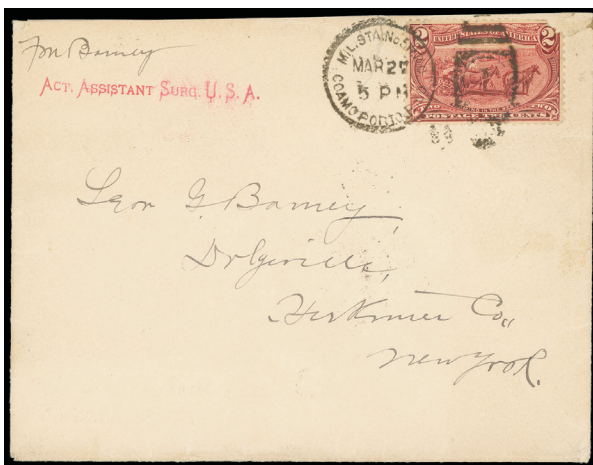 Barney
ACT. ASSISTANT SURG. U. S. A.
MIL. STA. No.
MAR 27
5 PM
COAMO PORTO
UNITED STATES OF AMERICA
2 2
TWO TWO
POSTAGE TWO CENTS
Leon G. Barney,
Dolgeville,
Herkimer Co.,
New York.